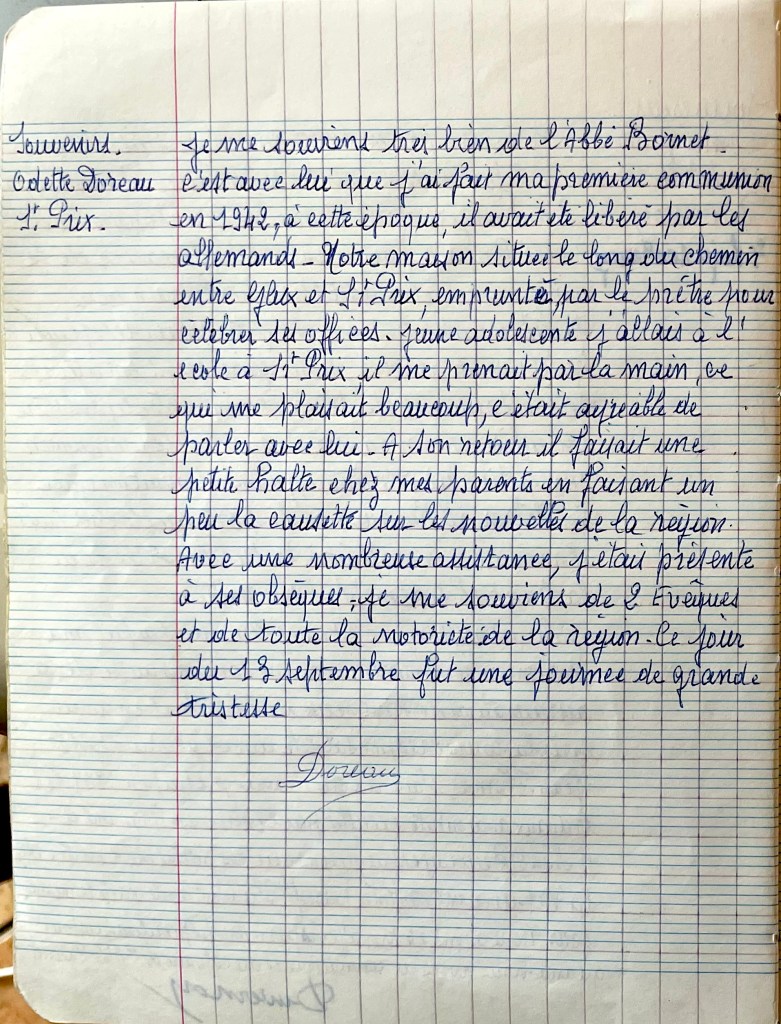 Souvenirs.
Odette Doreau
St Prix.
Je me souviens très bien de l'Abbé Bornet.
c'est avec lui que j'ai fait ma première communion
en 1942, à cette époque, il avait été libéré par les
allemands - Notre maison située le long du chemin
entre Glux et St Prix, emprunté, par le prêtre pour
célébrer ses offices. jeune adolescente j'allais à l'
école à St Prix, il me prenait par la main, ce
qui me plaisait beaucoup, c'était agréable de
parler avec lui - A son retour il faisait une
petite halte chez mes parents en faisant un
peu la causette sur les nouvelles de la région.
Avec une nombreuse assistance, j'étais présente
à ses obsèques, je me souviens de 2 Evêques
et de toute la notoriété de la région - Ce jour
du 13 septembre fut une journée de grande
tristesse
Doreau